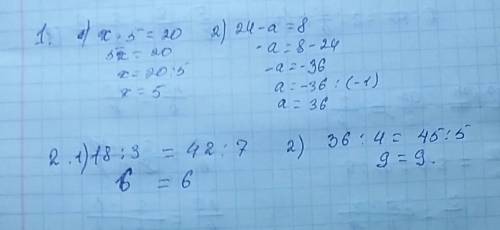 1. 1) x · 5 = 20
5x = 20
x = 20 : 5
x = 5
2) 24 - a = 8
-a = 8 - 24
-a = -36
a = -36 : (-1)
a = 36
2. 1) 18 : 3 = 42 : 7
6 = 6
2) 36 : 4 = 45 : 5
9 = 9.